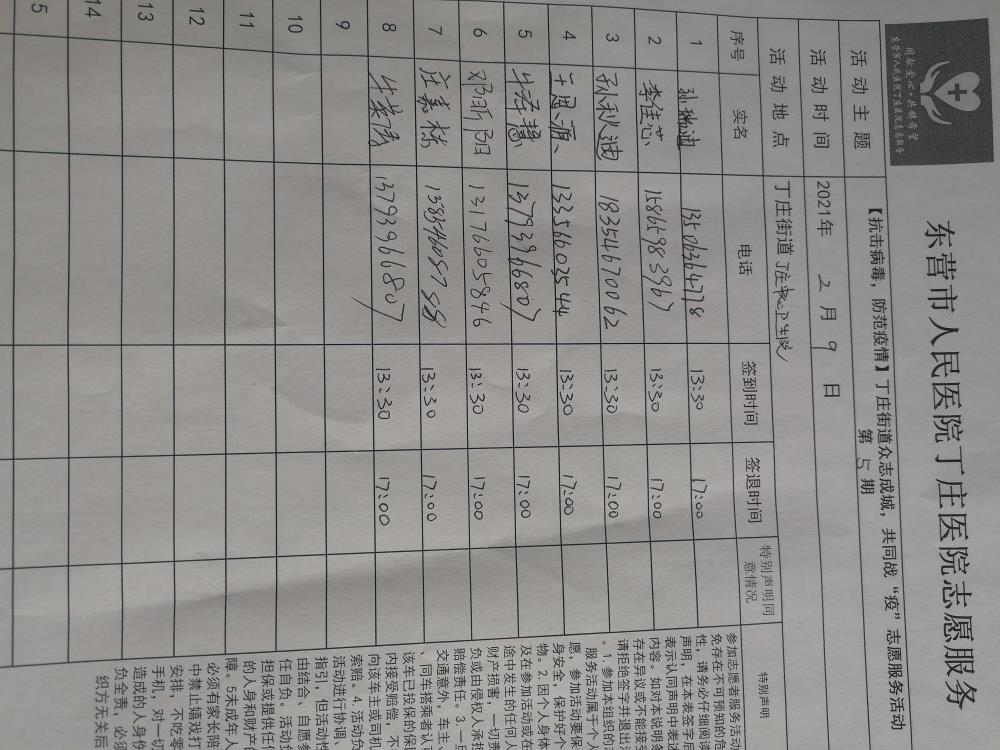 国际爱心·共铸希望
东营市人民医院丁庄医院志愿服务
东营市人民医院丁庄医院志愿服务
活动主题 【抗击病毒，防范疫情】丁庄街道众志成城，共同战“疫”志愿服务活动
第 5 期
活动时间 2021年 2 月 9 日
活动地点 丁庄街道 丁庄中心卫生院
序号 实名 电话 签到时间 签退时间 特别声明同意情况 特别声明
1 孙瑞迪 13506364778 13:30 17:00
2 李佳芯 15865983967 13:30 17:00
3 孙秋迪 18354670062 13:30 17:00
4 13356603544 13:30 17:00
5 牛孝慧 13793966807 13:30 17:00
6 邓昕阳 13176605846 13:30 17:00
7 庄嘉栋 13:30 17:00
8 13793966807 13:30 17:00
9
10
11
12
13
14
5
参加志愿者服务活动
免存在不可预知的危
性，请务必仔细阅读
声明，在本表签字后
表示认同声明中表述
内容。如对本说明条
存在异议或不能接受
请拒绝签字并退出
。1.参加本组织的
服务活动属于个人
愿，参加活动要保
身安全，保护好个
物。2.因个人身体
及在参加活动或在
途中发生的任何人
财产损害，一切责
负或由侵权人承担
赔偿责任。3.一旦
交通意外，车主、
、同车搭乘者认可
该车已投保的保险
内接受赔偿，不
向该车主或司机
索赔。4.活动负
活动进行协调、
指引，但活动性
由结合、自愿参
任自负。活动负
担保或提供任何
的人身和财产的
障。5未成年人
必须有家长陪
中禁止嬉戏打
安排，不吃零
手机，对一切
造成的人身伤
负全责，必须
织方无关后